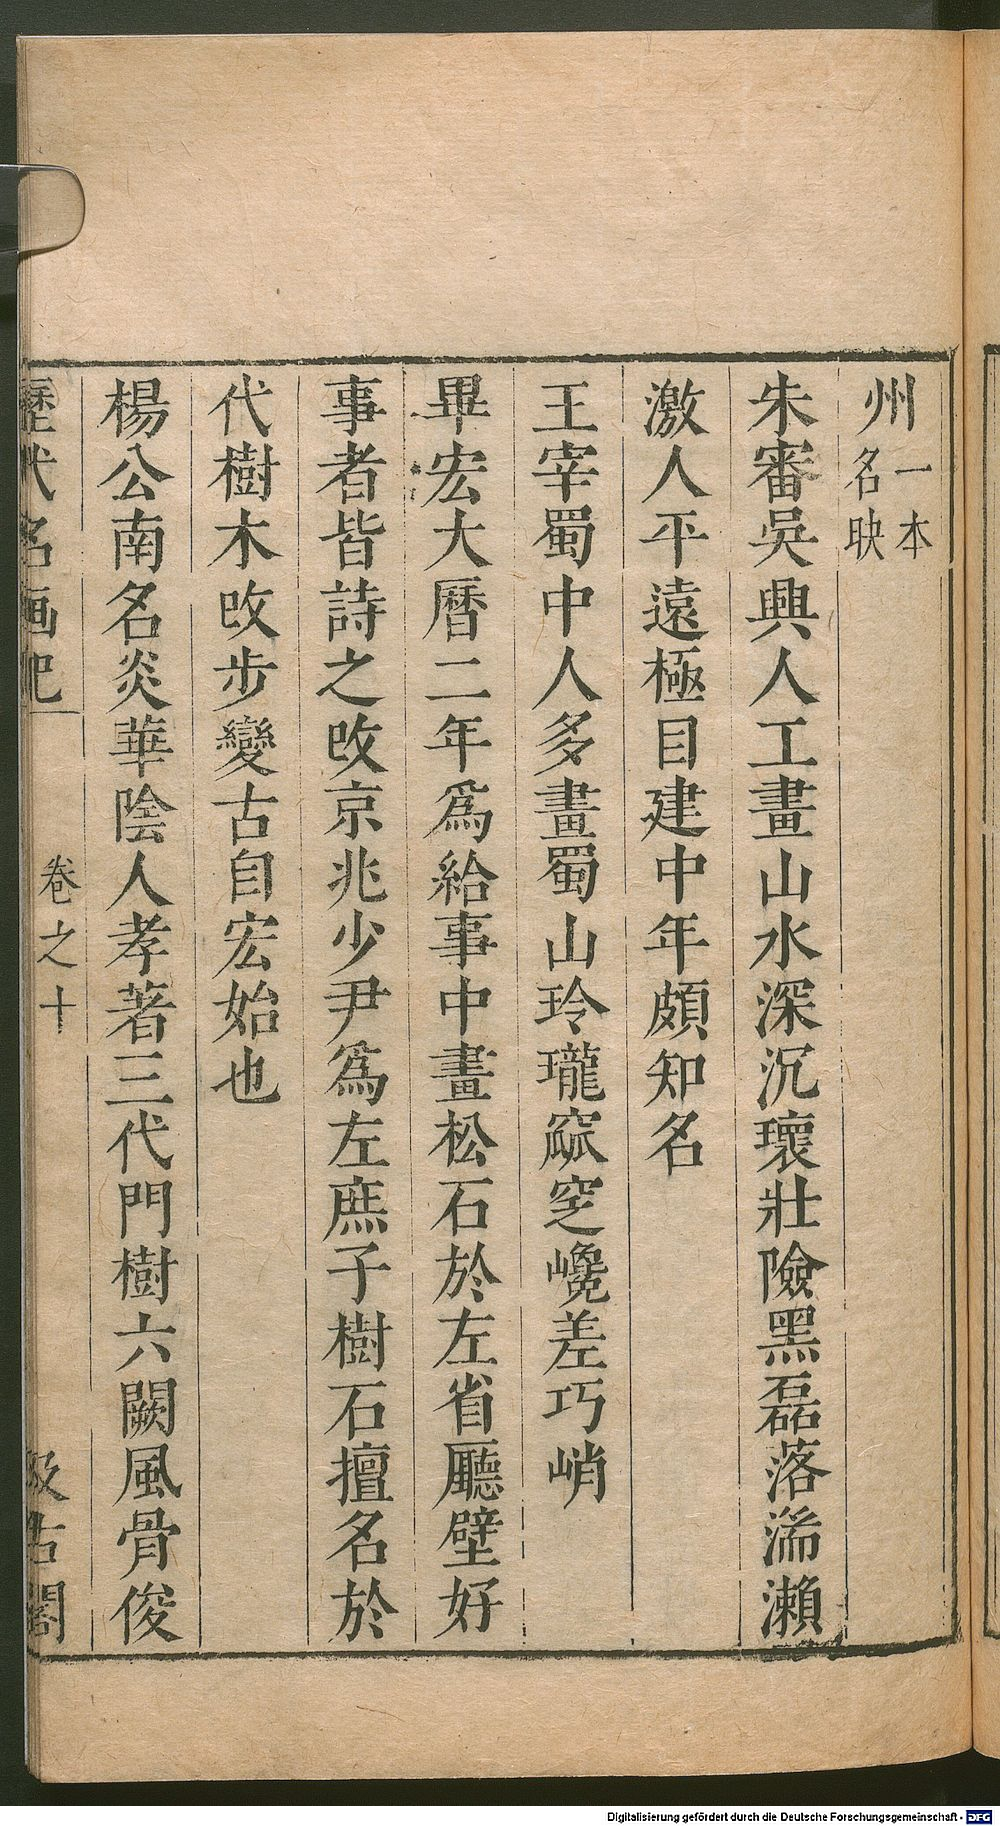 州一本名映
朱審吳興人工畫山水深沉瓌壯險黑磊落湍瀨
激人平遠極目建中年頗知名
王宰蜀中人多畫蜀山玲瓏窳窆巉差巧峭
畢宏大曆二年爲給事中畫松石於左省廳壁好
事者皆詩之改京兆少尹爲左庶子樹石擅名於
代樹木改步變古自宏始也
楊公南名炎華陰人孝著三代門樹六闕風骨俊
歷代名画記
卷之十
汲古閣
Digitalisierung gefördert durch die Deutsche Forschungsgemeinschaft - DFG